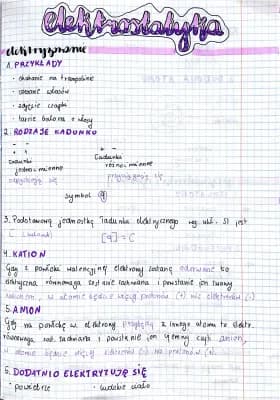 elektrostatyka
elektryzowanie
1. PRZYKŁADY
• skakanie na trampolinie
• czesanie włosów
• zdjęcie czapki
• tarcie balona o włosy
2. RODZAJE ŁADUNKU
- - + -
ładunki jednoimienne
ładunki różnoimienne
odpychają się przyciągają się
symbol q
3. Podstawową jednostką ładunku elektrycznego wg ukł. SI jest
C (kulomb) [q] = C
4. KATION
Gdy z powłoki walencyjnej elektrony zostaną oderwane to
elektryczna równowaga zostanie zachwiana i powstanie jon zwany
kationem, w atomie będzie więcej protonów (+) niż elektronów (-)
5. ANION
Gdy na powłokę w. elektrony przybędą z innego atomu to elektr.
równowaga zost. zachwiana i powstanie jon ujemny czyli anion,
w atomie będzie więcej elektronów (-) niż protonów (+).
6. DODATNIO ELEKTRYZUJĘ SIĘ
• powietrze • ludzkie ciało